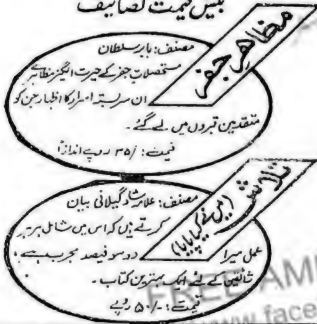 بیش قیمت تصانیف
مظاہر جفر
مصنف: بابر سلطان
مستحصلات جفر کے حیرت انگیز مظاہر
ان سربستہ اسرار کا اظہار جن کو
متقدمین قبروں میں لے گئے۔
قیمت: /۳۵ روپے اندازاً
تلاش
(میں نے کیا پایا)
مصنف: علامہ شاد گیلانی بیان
کرتے ہیں کہ اس میں شامل ہر ہر
عمل میرا دو سو فیصد مجرب ہے،
شائقین کے لئے ایک بہترین کتاب۔
قیمت: -/۵۰ روپے
FREE AM
www.face